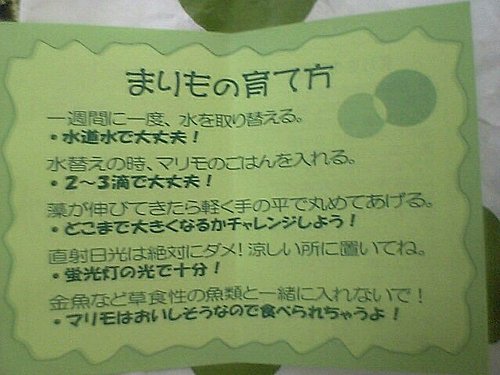 まりもの育て方
一週間に一度、水を取り替える。
・水道水で大丈夫！
水替えの時、マリモのごはんを入れる。
・２～３滴で大丈夫！
藻が伸びてきたら軽く手の平で丸めてあげる。
・どこまで大きくなるかチャレンジしよう！
直射日光は絶対にダメ！涼しい所に置いてね。
・蛍光灯の光で十分！
金魚など草食性の魚類と一緒に入れないで！
・マリモはおいしそうなので食べられちゃうよ！